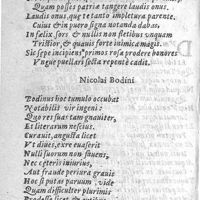 Quam posses patria tangere laudis onus.
Laudis onus, quę te tanto impletura parente.
Cuius & in puero signa notanda dabas
Infelix sors & nullis non fletibus vnquam
Tristior, & quauis forte inimica magis.
Sic sæpe incipiens primos rosa prodere honores
Vngue puellari secta repente cadit.
Nicolai Bodini
Bodinus hoc tumulo occubat
Notabilis vir ingeni:
Quo res suas tam gnauiter,
Et literarum nescius,
Curauit, angusta licet
Vt diues, exre euaserit
Nulli suorum non fauens,
Nec cęteris iniurius,
Aut fraude periura grauis
Hoc si putas paruum, vide
Quam difficulter plurimis